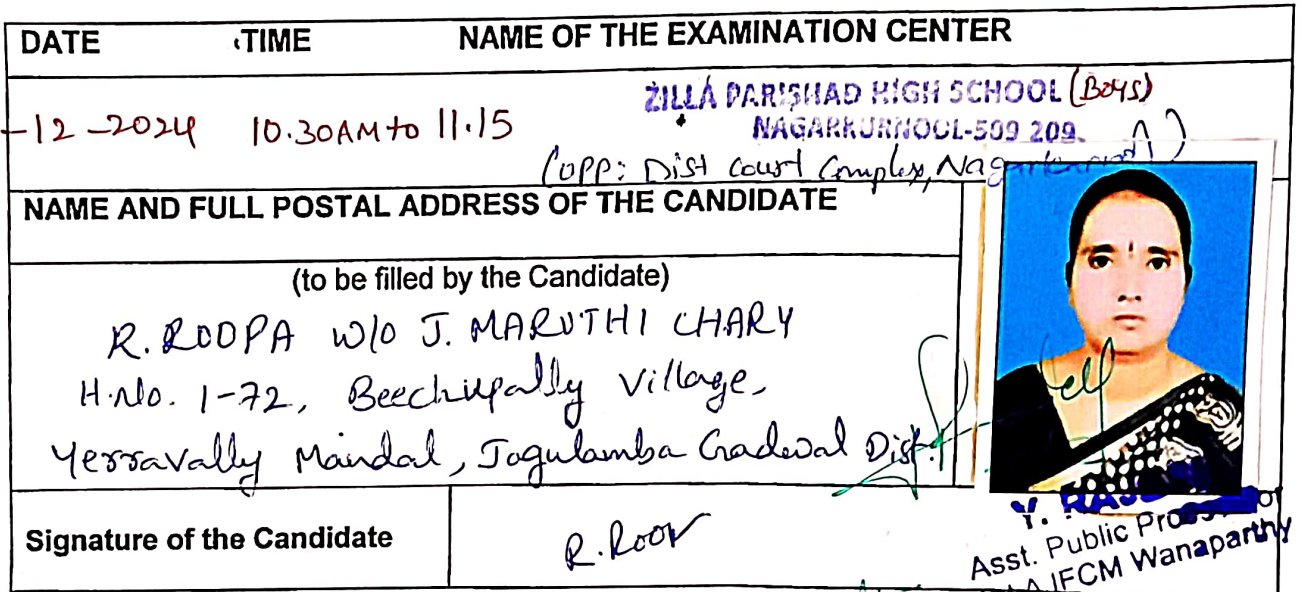 DATE TIME NAME OF THE EXAMINATION CENTER
-12-2024 10.30AM to 11.15
ZILLA PARISHAD HIGH SCHOOL (BOYS)
NAGARKURNOOL-509 209.
(OPP: Dist Court Complex, Nagarkurnool)
NAME AND FULL POSTAL ADDRESS OF THE CANDIDATE
(to be filled by the Candidate)
R. ROOPA W/O J. MARUTHI CHARY
H.No. 1-72, Beechupally Village,
Yerravally Mandal, Jogulamba Gadwal Dist.
Signature of the Candidate
R.Roop
Asst. Public Prosecutor
JFCM Wanaparthy